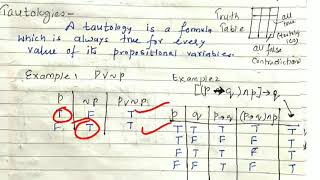 Tautologies -
A tautology is a formula
which is always true for every
value of its propositional variables.
Truth
Table
all
true
Tautology
all false
Contradiction
Example 1 P∨~P
Example 2
[(P→q)∩p]→q
p ~p P∨~P
T F T
F T T
p q P→q (P→q)∩p
T T T T T
T F F F T
F T T F T
F F T F T